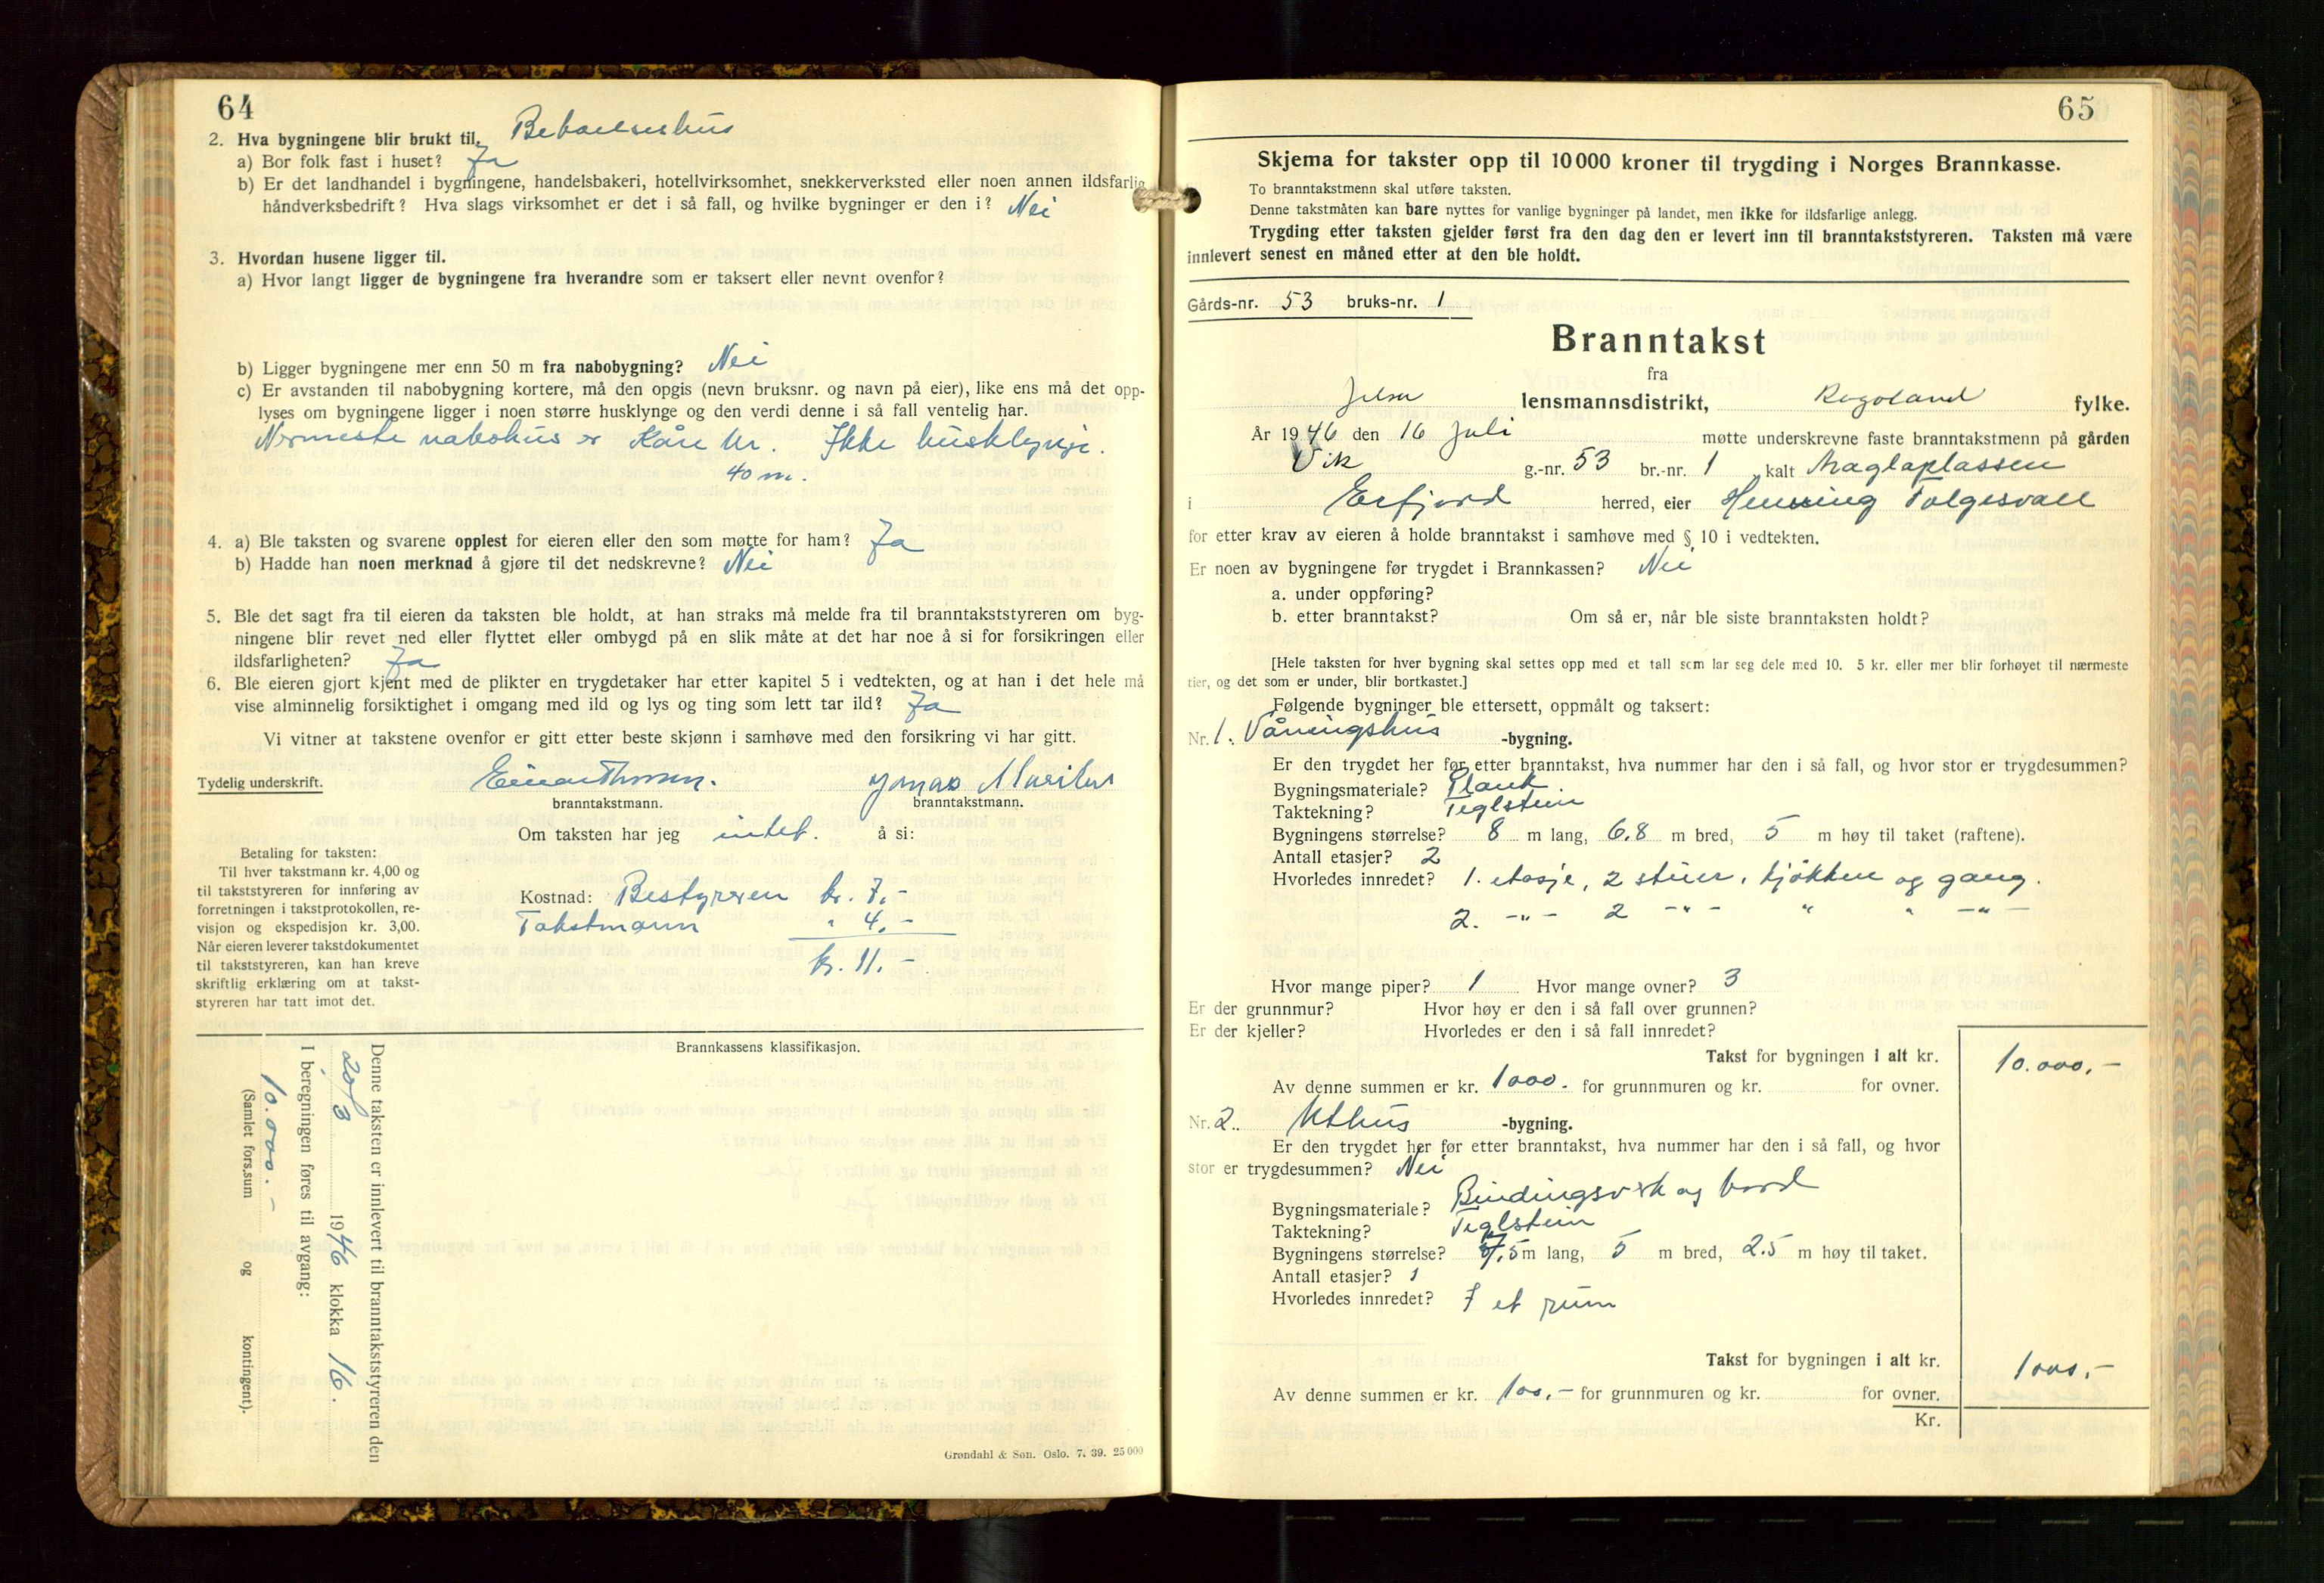 64
2. Hva bygningene blir brukt til. Beboelseshus
a) Bor folk fast i huset? Ja
b) Er det landhandel i bygningene, handelsbakeri, hotellvirksomhet, snekkerverksted eller noen annen ildsfarlig
håndverksbedrift? Hva slags virksomhet er det i så fall, og hvilke bygninger er den i? Nei
3. Hvordan husene ligger til.
a) Hvor langt ligger de bygningene fra hverandre som er taksert eller nevnt ovenfor?
b) Ligger bygningene mer enn 50 m fra nabobygning? Nei
c) Er avstanden til nabobygning kortere, må den opgis (nevn bruksnr. og navn på eier), like ens må det opp-
lyses om bygningene ligger i noen større husklynge og den verdi denne i så fall ventelig har.
Nermeste nabohus er Kåre Ur. Ikke husklynge.
40 m.
4. a) Ble taksten og svarene opplest for eieren eller den som møtte for ham? Ja
b) Hadde han noen merknad å gjøre til det nedskrevne? Nei
5. Ble det sagt fra til eieren da taksten ble holdt, at han straks må melde fra til branntakststyreren om byg-
ningene blir revet ned eller flyttet eller ombygd på en slik måte at det har noe å si for forsikringen eller
ildsfarligheten? Ja
6. Ble eieren gjort kjent med de plikter en trygdetaker har etter kapitel 5 i vedtekten, og at han i det hele må
vise alminnelig forsiktighet i omgang med ild og lys og ting som lett tar ild? Ja
Vi vitner at takstene ovenfor er gitt etter beste skjønn i samhøve med den forsikring vi har gitt.
Tydelig underskrift. Einar Thomsen. Jonas
branntakstmann. branntakstmann.
Om taksten har jeg intet. å si:
Betaling for taksten:
Til hver takstmann kr. 4,00 og
til takststyreren for innføring av
forretningen i takstprotokollen, re-
visjon og ekspedisjon kr. 3,00.
Når eieren leverer takstdokumentet
til takststyreren, kan han kreve
skriftlig erklæring om at takst-
styreren har tatt imot det.
Kostnad: Bestyreren kr. 7,-
Takstmann " 4,-
kr. 11.-
Brannkassens klassifikasjon.
Denne taksten er innlevert til branntakststyreren den
20/3 1946 klokka 16.
I beregningen føres til avgang:
10.000.-
(Samlet fors.sum og kontingent).
Grøndahl & Søn. Oslo. 7. 39. 25 000
65
Skjema for takster opp til 10 000 kroner til trygding i Norges Brannkasse.
To branntakstmenn skal utføre taksten.
Denne takstmåten kan bare nyttes for vanlige bygninger på landet, men ikke for ildsfarlige anlegg.
Trygding etter taksten gjelder først fra den dag den er levert inn til branntakststyreren. Taksten må være
innlevert senest en måned etter at den ble holdt.
Gårds-nr. 53 bruks-nr. 1
Branntakst
fra
Jelsa lensmannsdistrikt, Rogaland fylke.
År 1946 den 16 Juli møtte underskrevne faste branntakstmenn på gården
Vik g.-nr. 53 br.-nr. 1 kalt Maglaplassen
i Erfjord herred, eier Henning Folgesvall
for etter krav av eieren å holde branntakst i samhøve med § 10 i vedtekten.
Er noen av bygningene før trygdet i Brannkassen? Nei
a. under oppføring?
b. etter branntakst? Om så er, når ble siste branntaksten holdt?
[Hele taksten for hver bygning skal settes opp med et tall som lar seg dele med 10. 5 kr. eller mer blir forhøyet til nærmeste
tier, og det som er under, blir bortkastet.]
Følgende bygninger ble ettersett, oppmålt og taksert:
Nr. 1. Våningshus -bygning.
Er den trygdet her før etter branntakst, hva nummer har den i så fall, og hvor stor er trygdesummen?
Bygningsmateriale? Plank
Taktekning? Teglstein
Bygningens størrelse? 8 m lang, 6.8 m bred, 5 m høy til taket (raftene).
Antall etasjer? 2
Hvorledes innredet? 1. etasje, 2 stuer, kjøkken og gang.
2. -"- 2 -"- " " -"-
Hvor mange piper? 1 Hvor mange ovner? 3
Er der grunnmur? Hvor høy er den i så fall over grunnen?
Er der kjeller? Hvorledes er den i så fall innredet?
Takst for bygningen i alt kr. 10.000,-
Av denne summen er kr. 1000.- for grunnmuren og kr. for ovner.
Nr. 2. Uthus -bygning.
Er den trygdet her før etter branntakst, hva nummer har den i så fall, og hvor
stor er trygdesummen? Nei
Bygningsmateriale? Bindingsverk og bord
Taktekning? Teglstein
Bygningens størrelse? 7,5 m lang, 5 m bred, 2.5 m høy til taket.
Antall etasjer? 1
Hvorledes innredet? I et rum
Takst for bygningen i alt kr. 1000,-
Av denne summen er kr. 100,- for grunnmuren og kr. for ovner.
Kr.